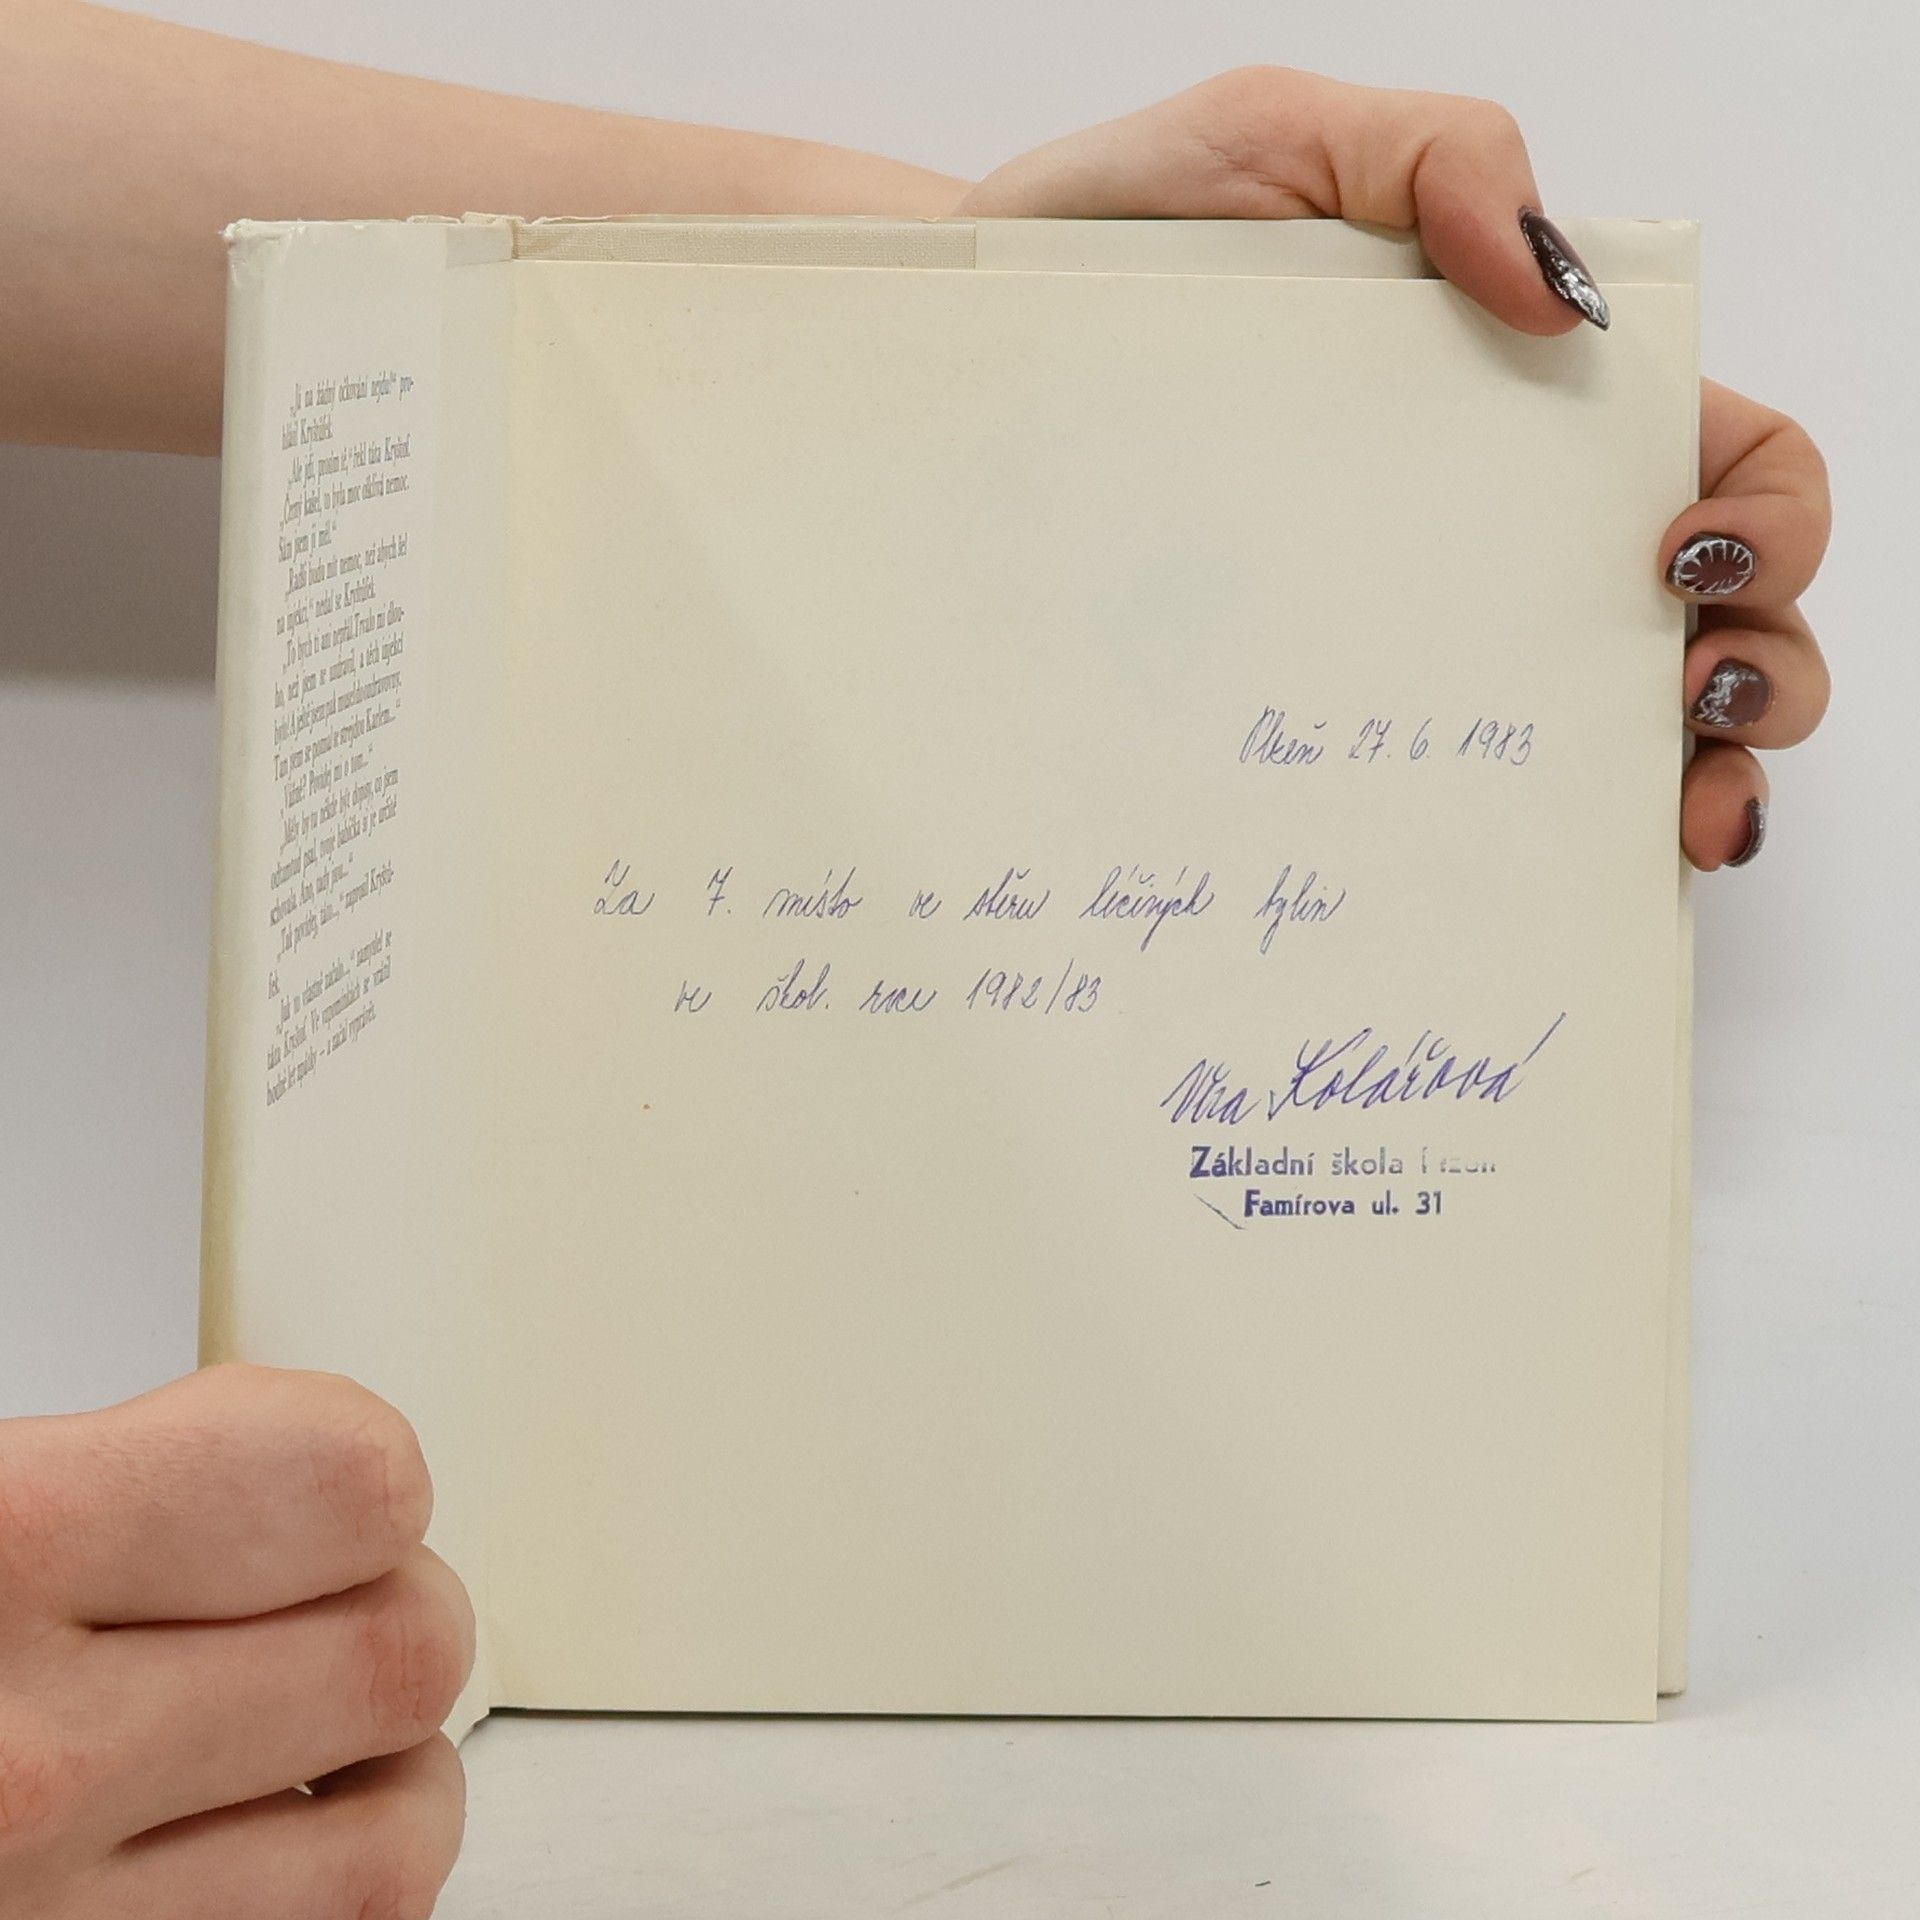 „Já na žádný očkování nejdu!“ pro-
hlásil Kryštůfek.
„Ale jdi, prosím tě,“ řekl táta Kryštof.
„Černý kašel, to byla moc ošklivá nemoc.
Sám jsem ji měl.“
„Radši budu mít nemoc, než abych šel
na injekci,“ nedal se Kryštůfek.
„To bych ti ani nepřál. Trvalo mi dlou-
ho, než jsem se uzdravil, a těch injekcí
bylo! A ještě jsem pak musel do ozdravovny.
Tam jsem se poznal se strejdou Karlem...“
„Vážně? Povídej mi o tom...“
„Měly by tu někde být dopisy, co jsem
odtamtud psal, tvoje babička si je určitě
schovala. Ano, tady jsou...“
„Tak povídej, táto...,“ naprosil Kryštů-
fek.
„Jak to vlastně začalo...,“ zamyslel se
táta Kryštof. Ve vzpomínkách se vrátil
hodně let zpátky – a začal vyprávět.
Plzeň 27. 6. 1983
Za 7. místo ve sběru léčivých bylin
ve škol. roce 1982/83
Věra Kolářová
Základní škola Plzeň
Famírova ul. 31